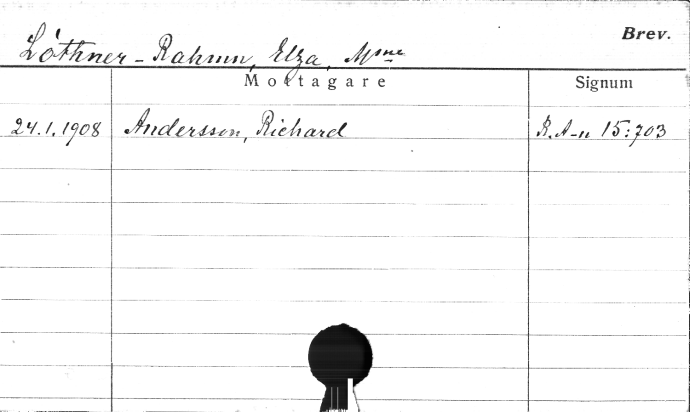 Brev.
Löthner-Rahmn, Elza, Mme
Mottagare Signum
24.1.1908 Andersson, Richard R. A-n 15:703